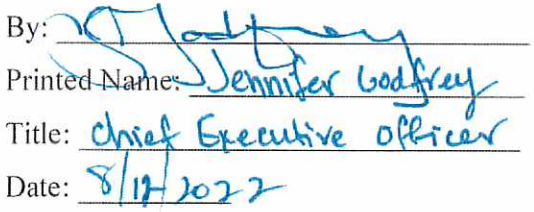 By: J Godfrey
Printed Name: Jennifer Godfrey
Title: Chief Executive Officer
Date: 8/12/2022